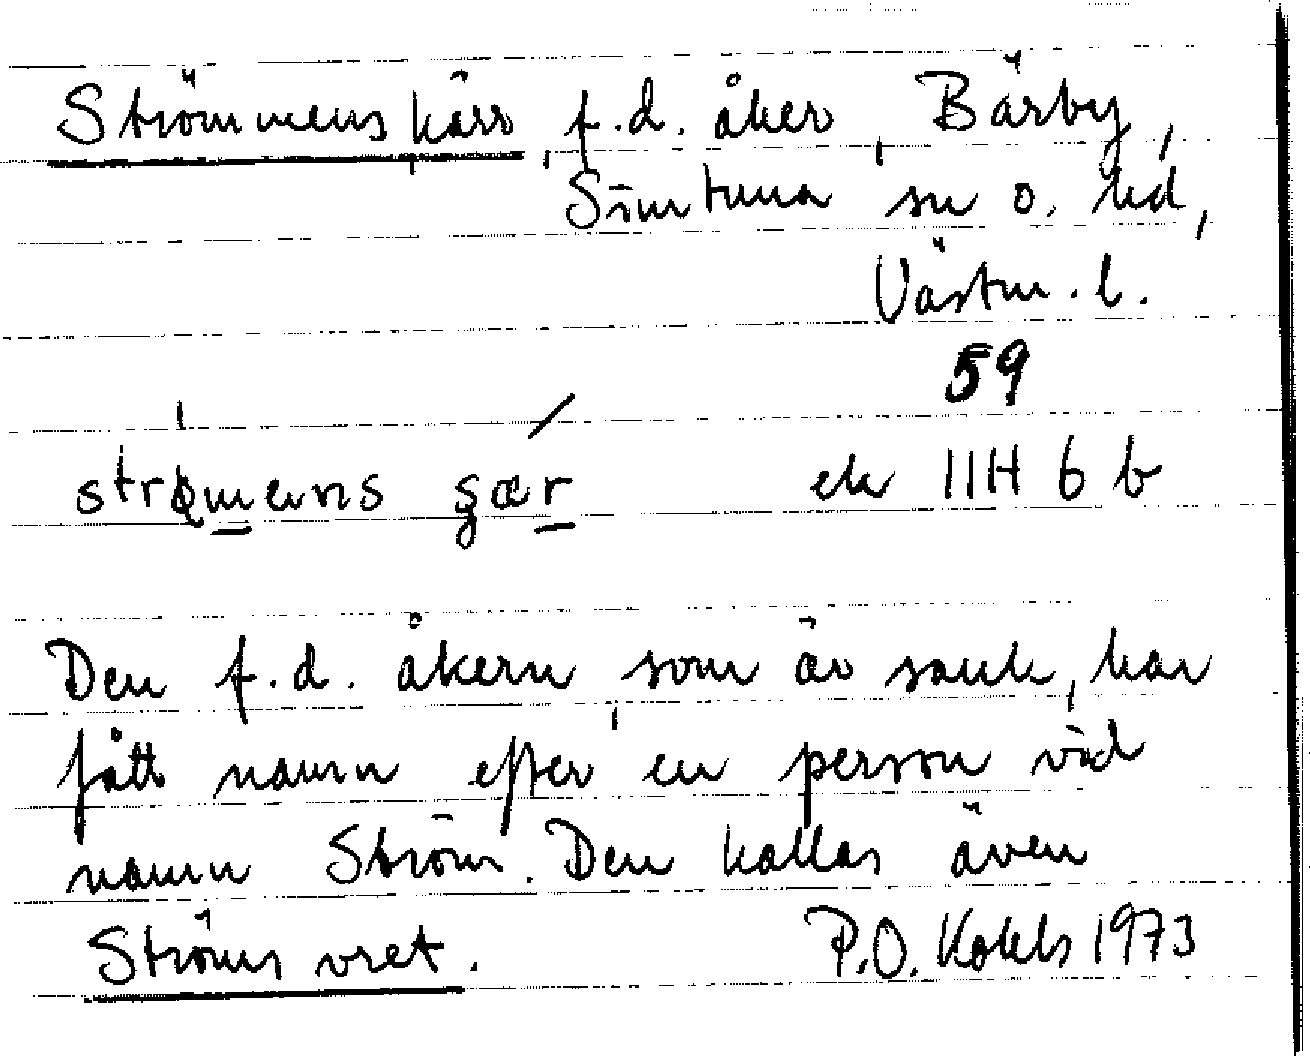 Strömmens kärr, f.d. åker, Bärby,
Simtuna sn o. hd,
Västm. l.
59
ek 11H 6 b
Den f.d. åkern, som är sank, har
fått namn efter en person vid
namn Ström. Den kallas även
Ströms vret.
P.O. Kohls 1973